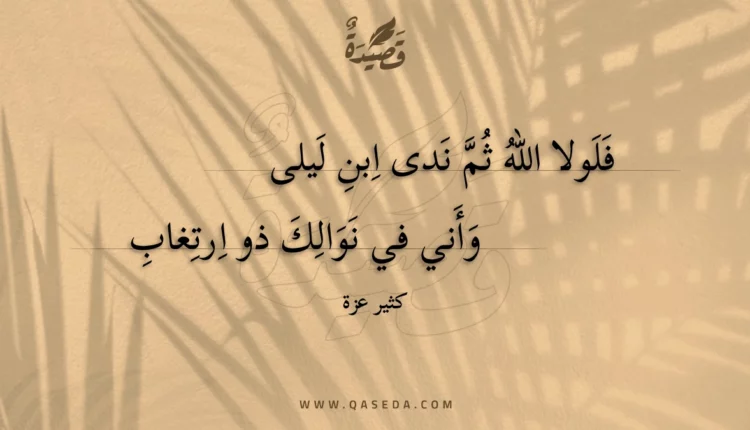 قَصِيدَةٌ
فَلَولا اللَهُ ثُمَّ نَدى اِبنِ لَيلى
وَأَني في نَوَالِكَ ذو اِرتِغابِ
كثير عزة
WWW.QASEDA.COM